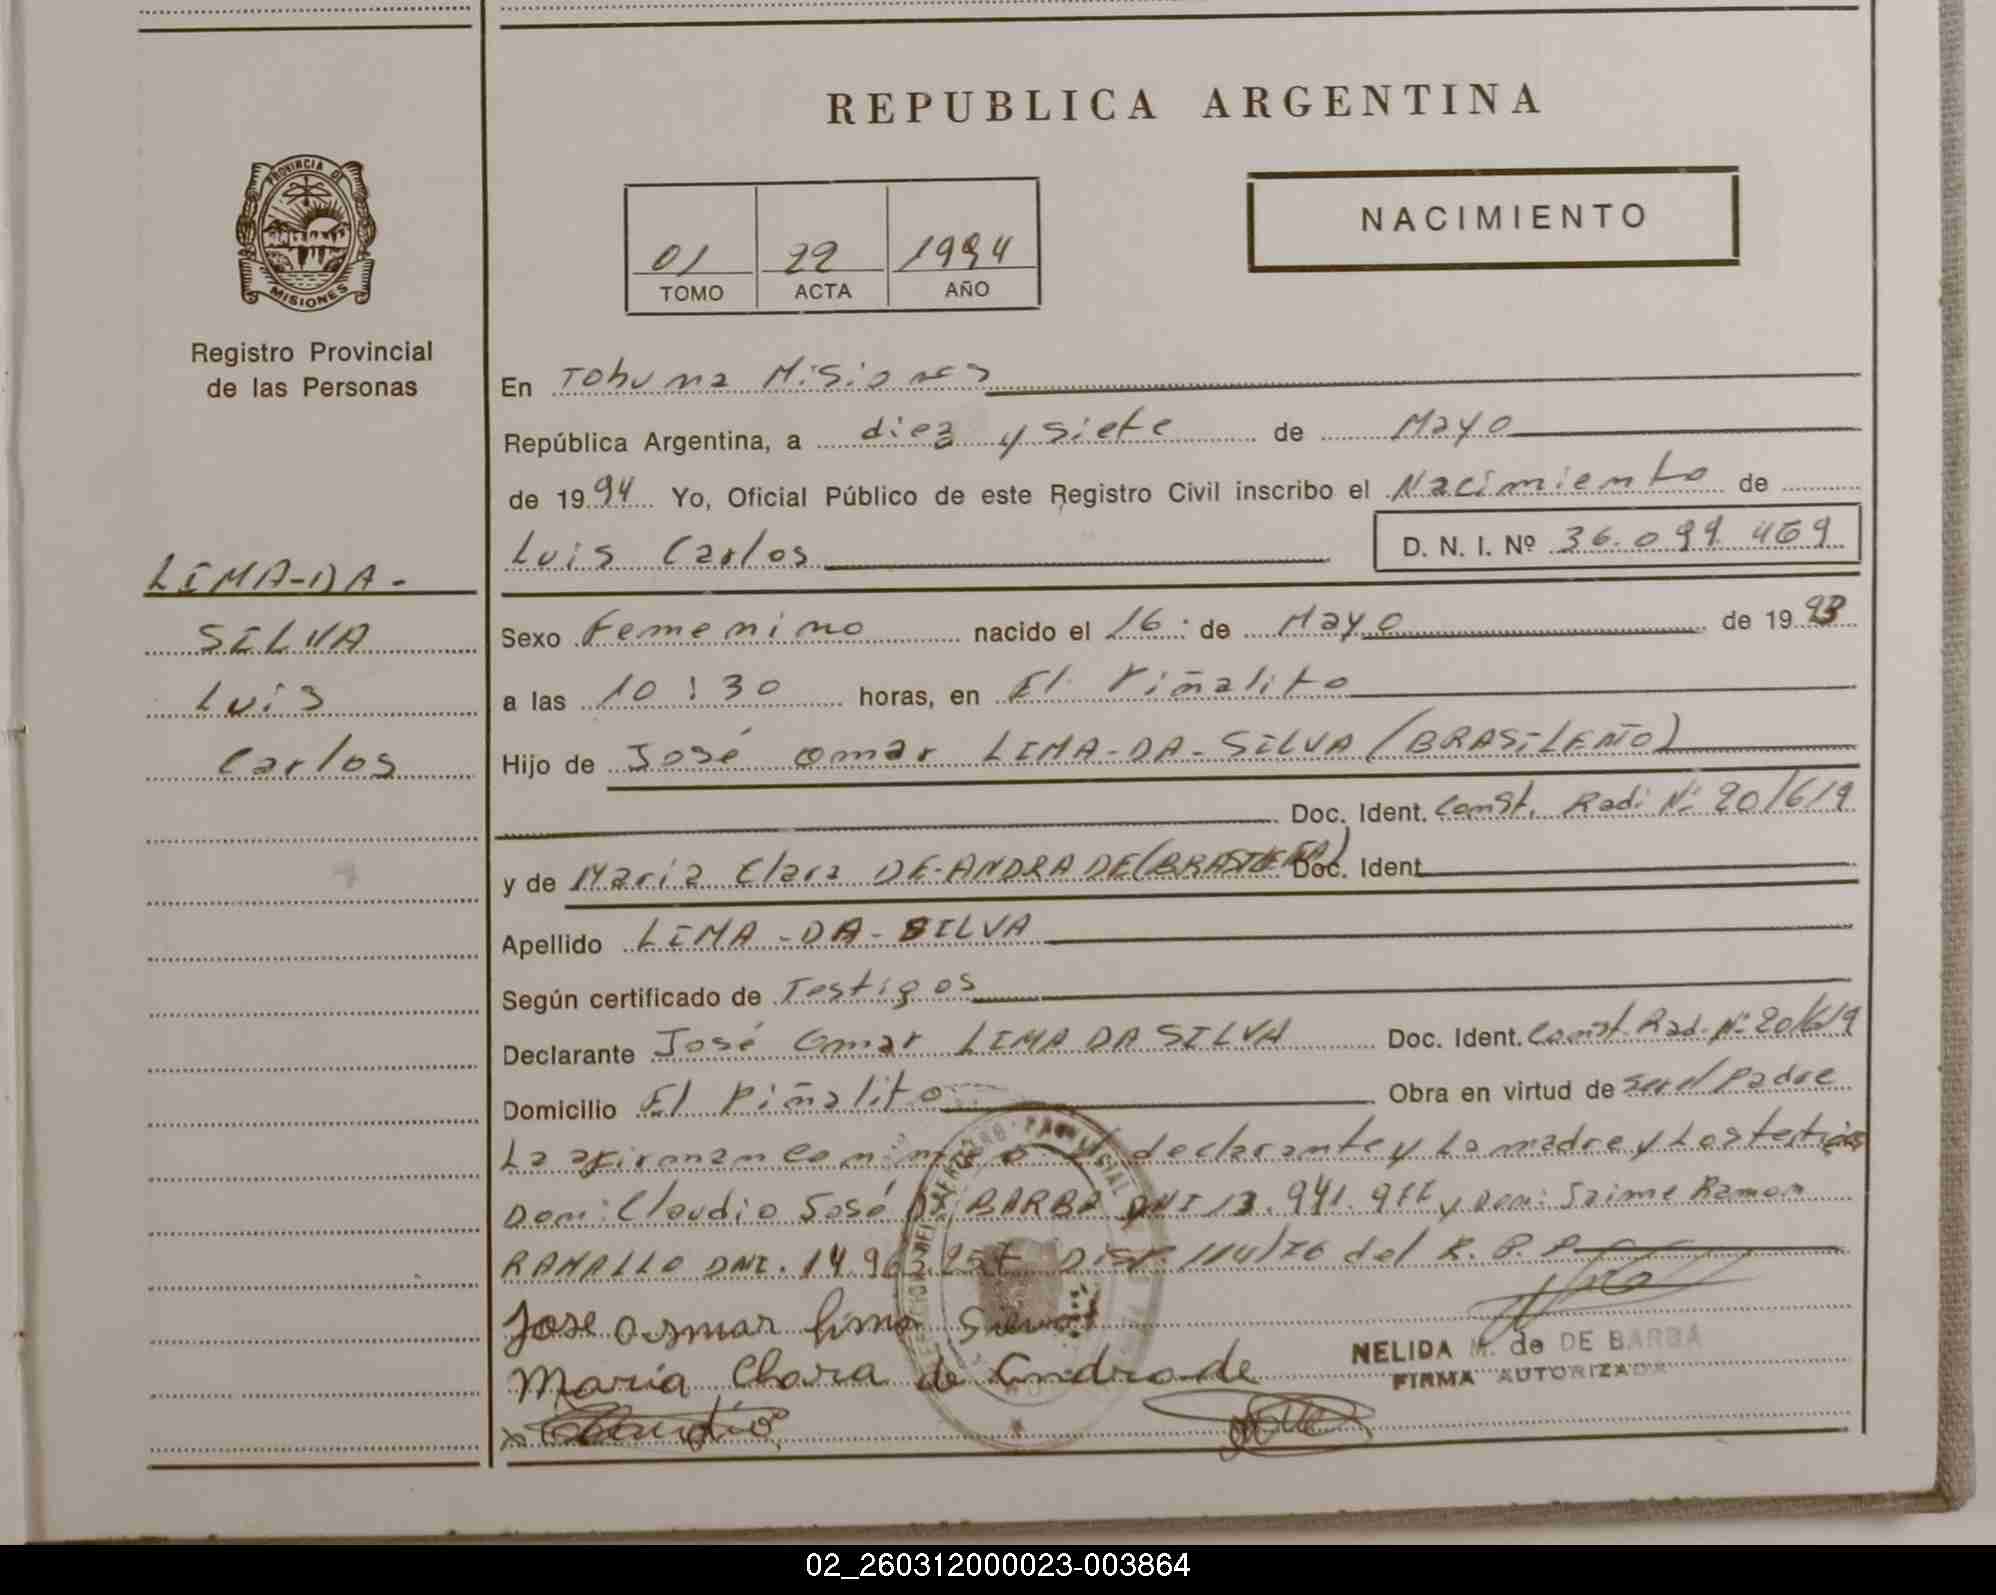 REPUBLICA ARGENTINA
PROVINCIA DE
MISIONES
Registro Provincial
de las Personas
01 22 1994
TOMO ACTA AÑO
NACIMIENTO
LIMA-DA-
SILVA
Luis
Carlos
En Tobuna Misiones
República Argentina, a diez y siete de Mayo
de 1994 Yo, Oficial Público de este Registro Civil inscribo el Nacimiento de
Luis Carlos D. N. I. Nº 36.099.469
Sexo Femenino nacido el 16 de Mayo de 1993
a las 10:30 horas, en El Piñalito
Hijo de José Omar LIMA-DA-SILVA (BRASILEÑO)
Doc. Ident. Const. Radi Nº 20/619
y de Maria Clara DE-ANDRADE (BRASILEÑA) Doc. Ident.
Apellido LIMA-DA-SILVA
Según certificado de Testigos
Declarante José Omar LIMA DA SILVA Doc. Ident. Const. Rad. Nº 20/619
Domicilio El Piñalito Obra en virtud de ser el padre
La afirman conmigo el declarante y La madre y Los testigos
Don: Claudio José DE BARBA DNI 13.941.911 y Don: Jaime Ramon
RAMALLO DNI. 14.963.257 DISP. 114/76 del R. P. P.
Jose Osmar Lima Silva
Maria Clara de Andrade
NELIDA M. de DE BARBÁ
FIRMA AUTORIZADA
Claudio
02_260312000023-003864